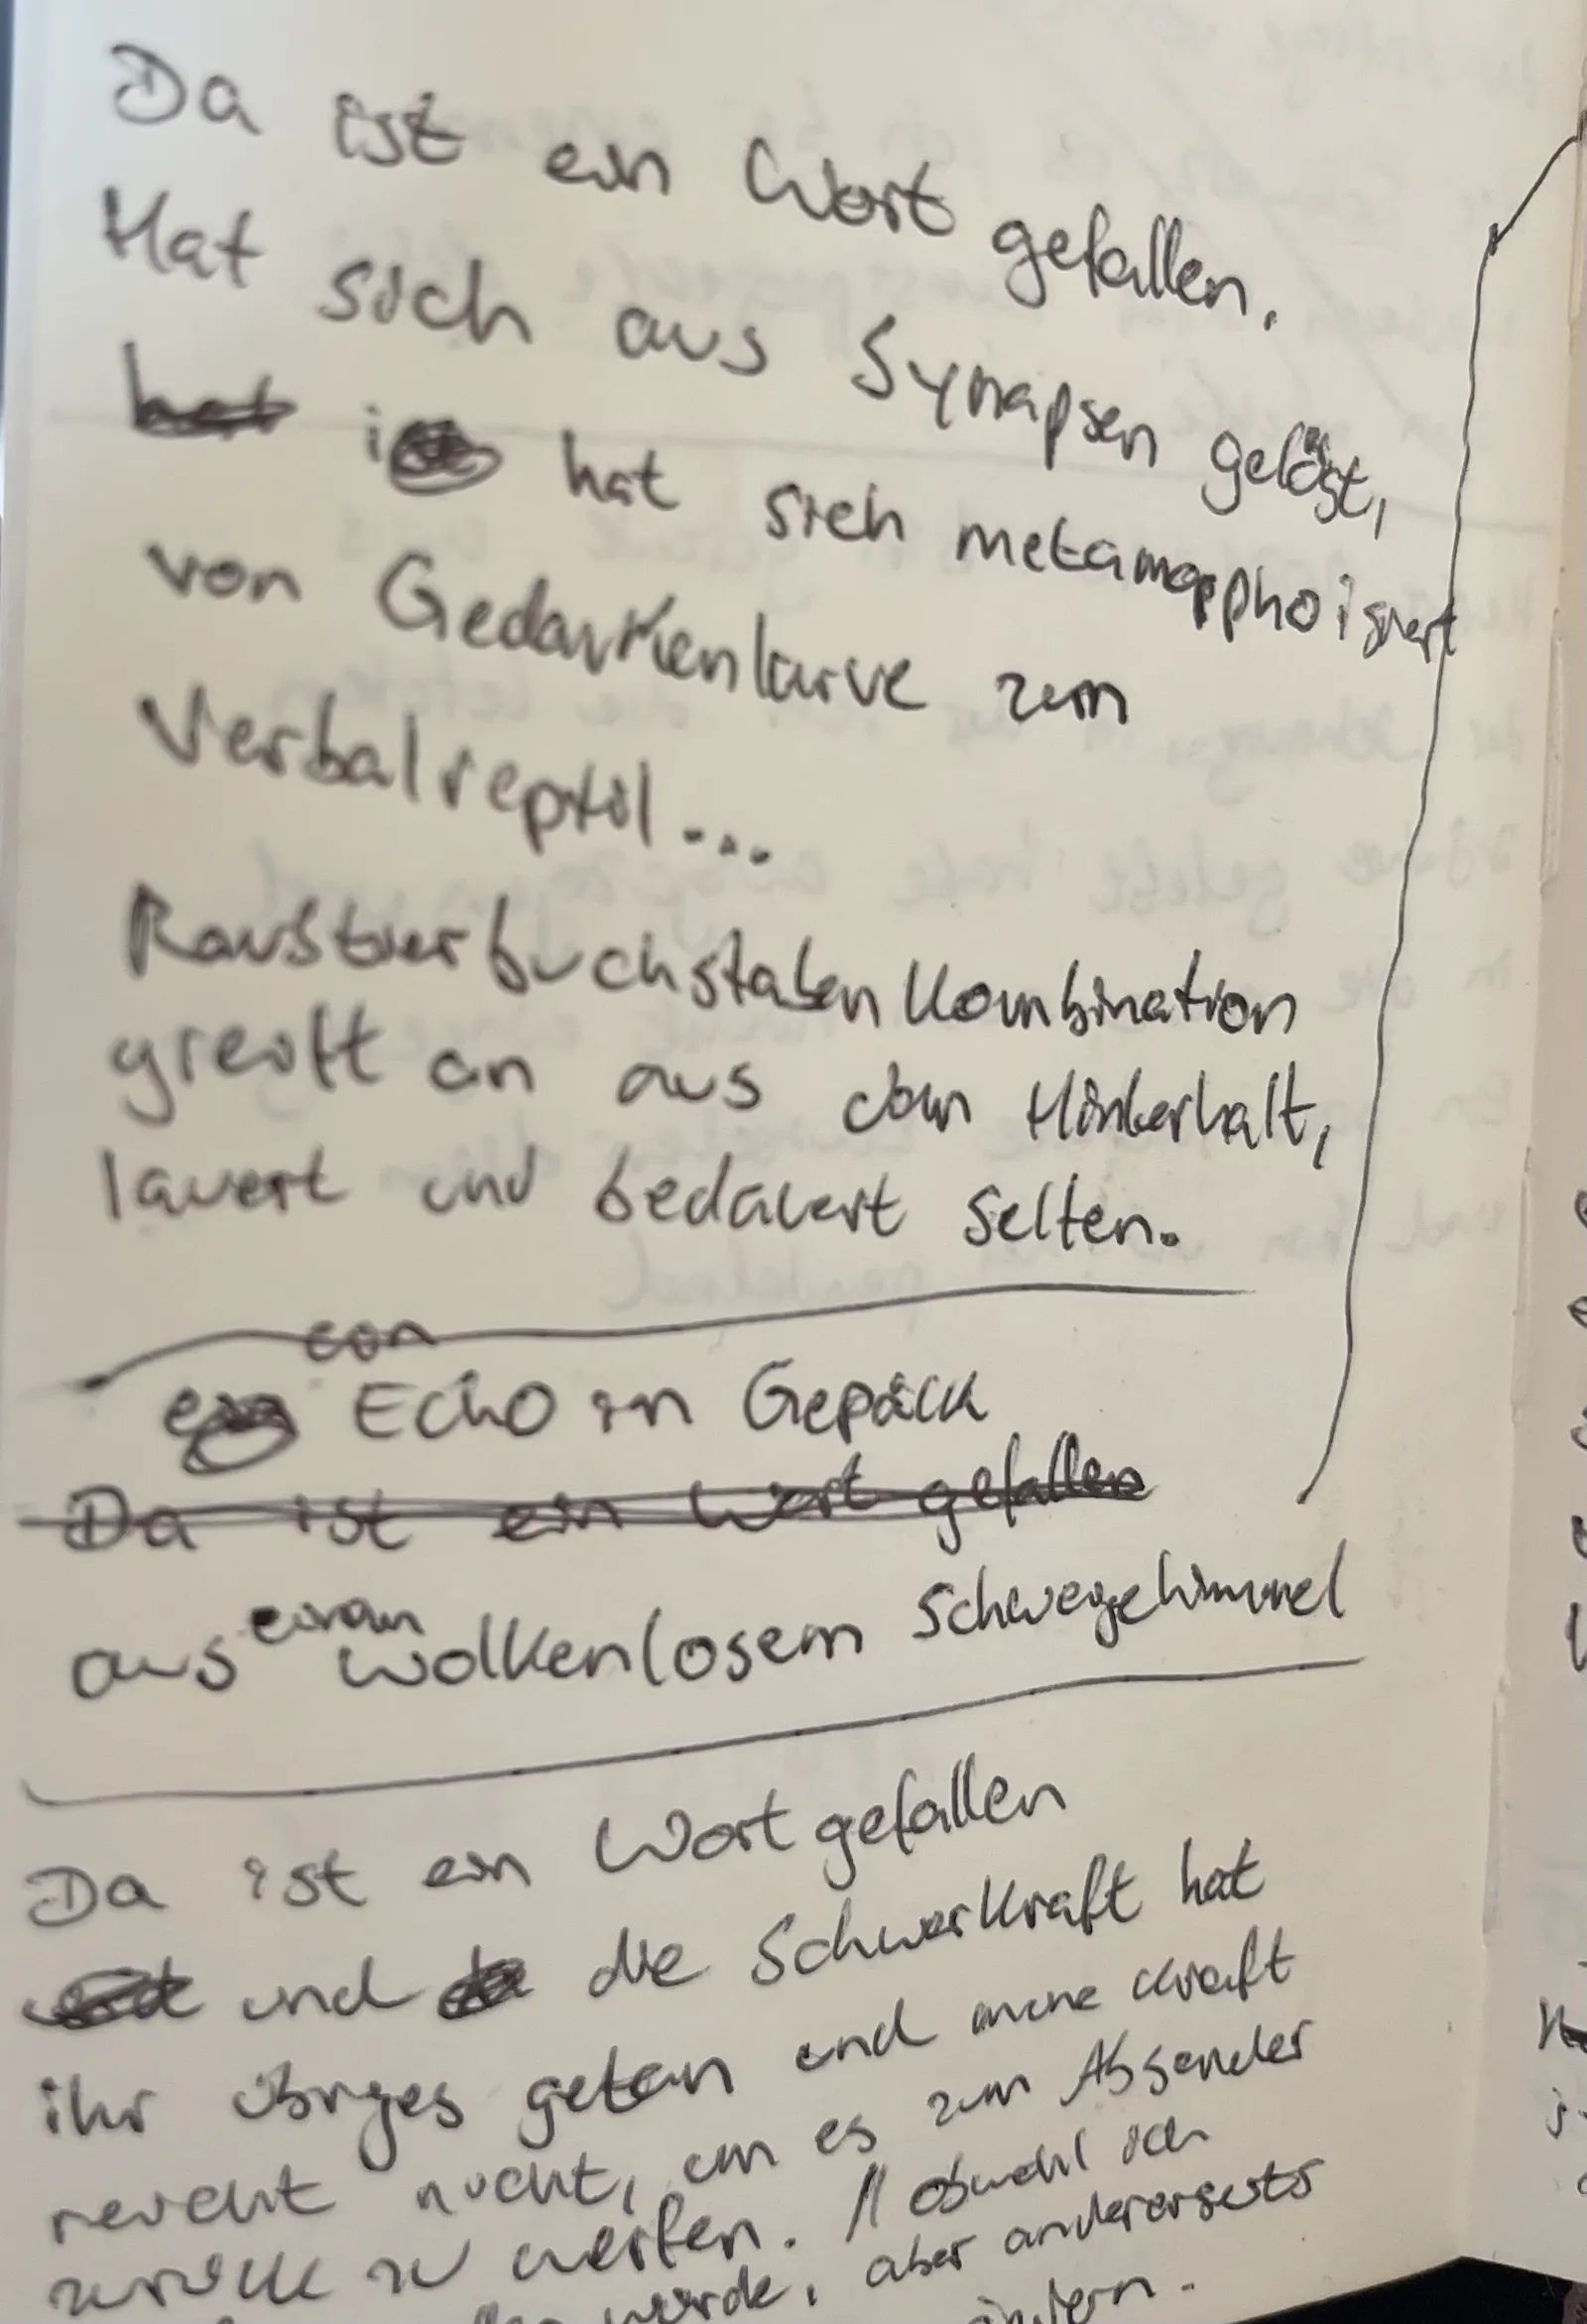 Da ist ein Wort gefallen.
Hat sich aus Synapsen gelöst,
hat hat sich metamorpphoisiert
von Gedankenlarve zum
Verbalreptil...
Raubtierbuchstabenkombination
greift an aus dem Hinterhalt,
lauert und bedauert selten.
ein
Echo im Gepäck
Da ist ein Wort gefallen
einem
aus wolkenlosem Schweigehimmel
Da ist ein Wort gefallen
und die Schwerkraft hat
ihr übriges getan und meine Kraft
reicht nicht, um es zum Absender
zurück zu werfen. // obwohl ich
würde, aber andererseits